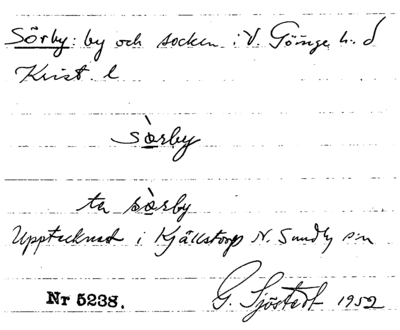 Sörby: by och socken i V. Göinge h.d
Krist. l
sòrby
ta sòrby
Upptecknat i Kjällstorp N. Sandby sn
G. Sjöstedt 1952
Nr 5238.